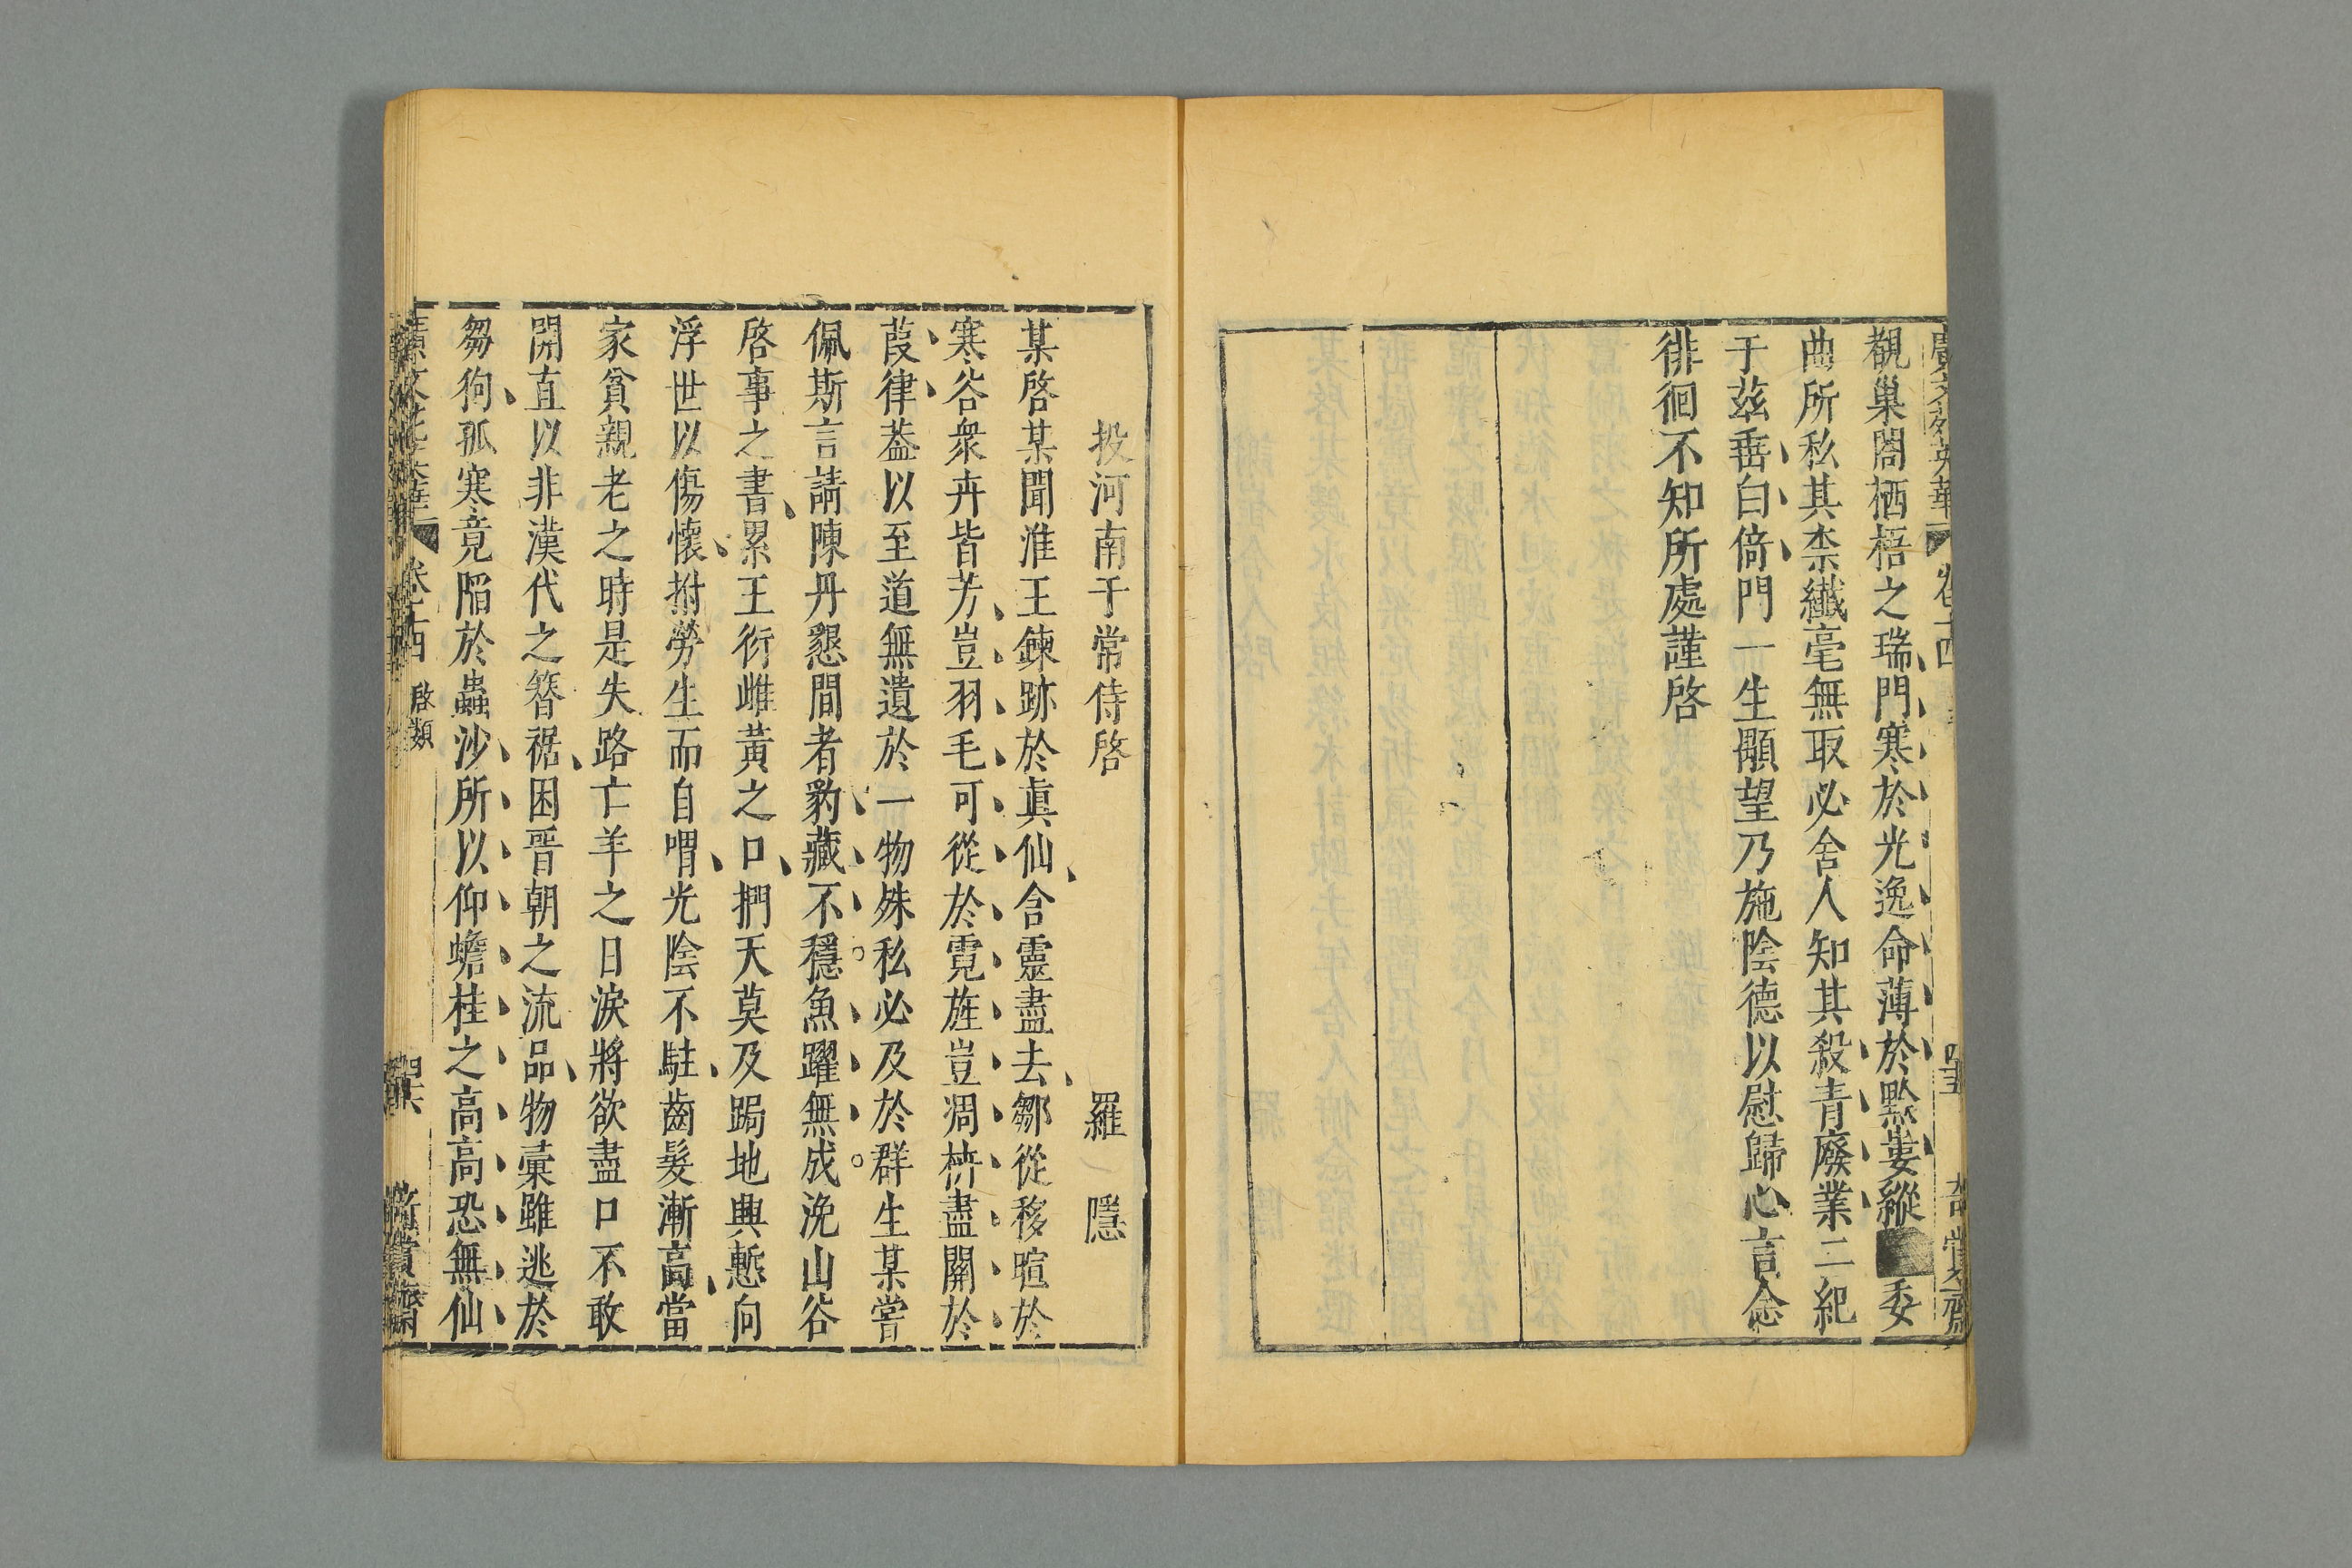 廣文苑英華 卷十四 奇賞齋
觀巢閣栖梧之瑞門寒於光逸命薄於黔婁縱委
曲所私其柰纖毫無取必舍人知其殺青廢業二紀
于茲垂白倚門一生顒望乃施陰德以慰歸心言念
徘徊不知所處謹啓
投河南于常侍啓 羅隱
某啓某聞淮王鍊跡於眞仙含靈盡去鄒從移暄於
寒谷衆卉皆芳豈羽毛可從於霓旌豈凋枿盡關於
葭律葢以至道無遺於一物殊私必及於群生某嘗
佩斯言請陳丹懇間者豹藏不穩魚躍無成浼山谷
啓事之書累王衍雌黃之口捫天莫及跼地興慙向
浮世以傷懷拊勞生而自喟光陰不駐齒髮漸高當
家貧親老之時是失路亡羊之日淚將欲盡口不敢
開直以非漢代之簪裾困晋朝之流品物彙雖逃於
芻狗孤寒竟陷於蟲沙所以仰蟾桂之高高恐無仙
卷十四 啓類 奇賞齋